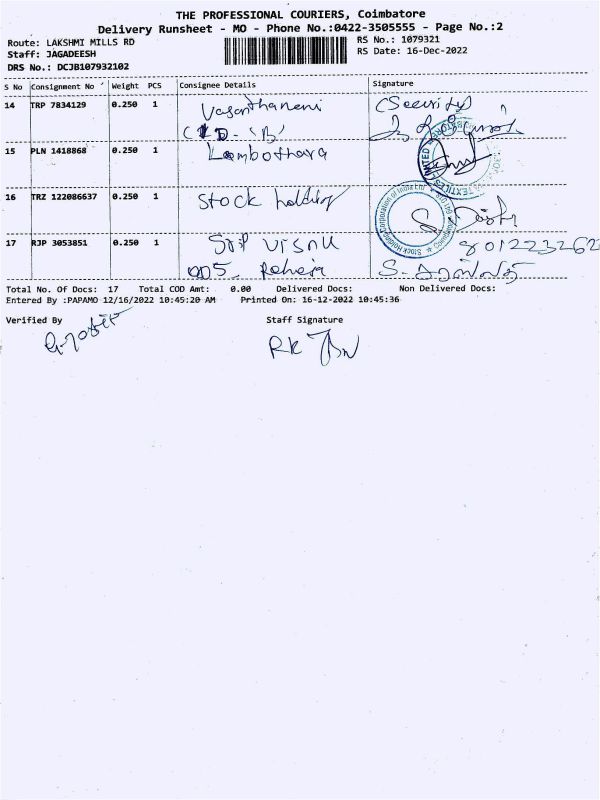 THE PROFESSIONAL COURIERS, Coimbatore
Delivery Runsheet - MO - Phone No.:0422-3505555 - Page No.:2
Route: LAKSHMI MILLS RD
RS No.: 1079321
Staff: JAGADEESH
RS Date: 16-Dec-2022
DRS No.: DCJB107932102
S No Consignment No Weight PCS Consignee Details Signature
14 TRP 7834129 0.250 1 (Security)
15 PLN 1418868 0.250 1
16 TRZ 122086637 0.250 1 Stock holding
Stock Holding Corporation of India Ltd
17 RJP 3053851 0.250 1
Raheja
Total No. Of Docs: 17 Total COD Amt: 0.00 Delivered Docs: Non Delivered Docs:
Entered By :PAPAMO 12/16/2022 10:45:20 AM Printed On: 16-12-2022 10:45:36
Verified By Staff Signature